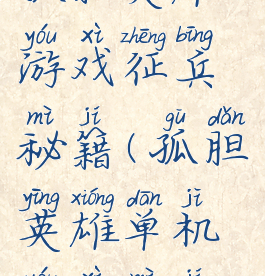 yóu xì zhēng bīng
游戏征兵
mì jí gū dǎn
秘籍(孤胆
yīng xióng dān jī
英雄单机